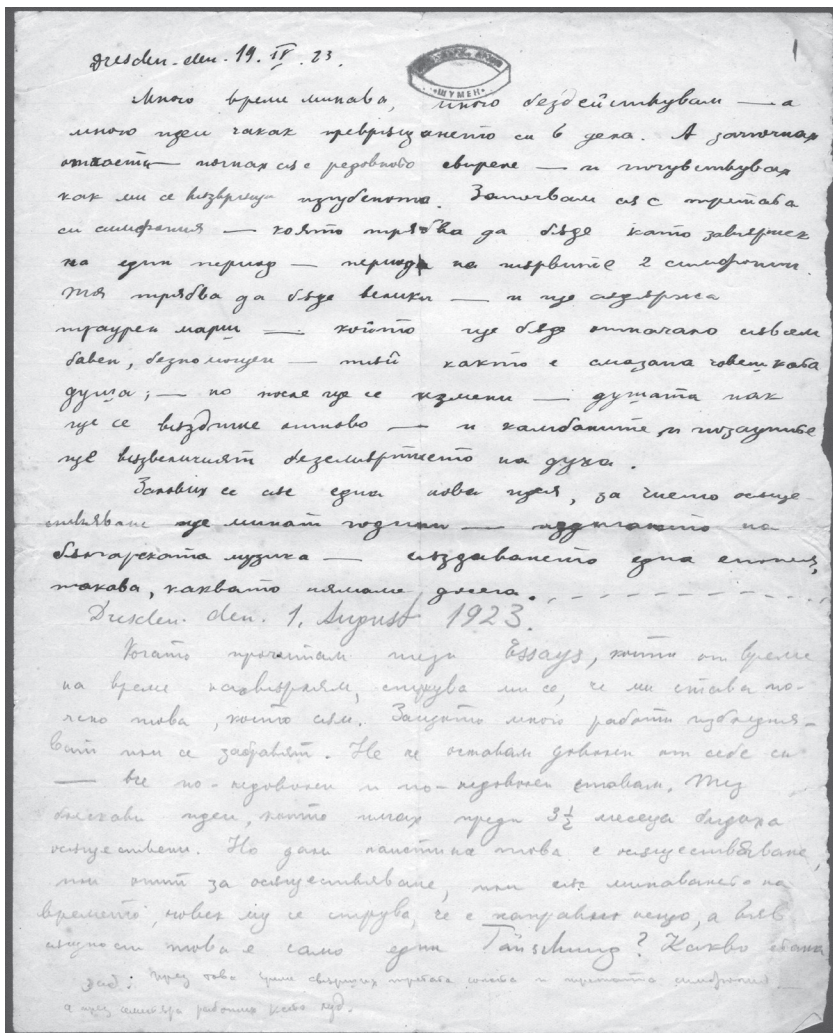 Dresden. den. 19. IV. 23.
1
ШУМЕН
Много време минава, много бездействувам — а
много идеи чакат превръщането си в дела. А започнах
отчасти — почнах със редовното свирене — и почувствувах
как ми се възвръща изгубеното. Започвам със третата
си симфония — която трябва да бъде като завършек
на един период — периода на първите 2 симфонии.
Тя трябва да бъде велика — и ще съдържа
траурен марш — който ще бъде отначало съвсем
бавен, безпомощен — тъй както е смазана човешката
душа; — но после ще се измени — душата пак
ще се въздигне отново — и камбаните и
ще възвеличаят безсмъртието на духа.
Залових се със една нова идея, за чието осъще-
ствяване ще минат години — издигането на
българската музика — създаването една епопея,
такава, каквато нямаме досега.
Dresden. den. 1. August 1923.
Когато прочитам тези Essays, които от време
на време нахвърлям, струва ми се, че ми става по-
ясно това, което съм. Защото много работи избледня-
ват или се забравят. Не не оставам доволен от себе си
— все по-недоволен и по-недоволен ставам. Тез
бляскави идеи, които имах преди 3½ месеца бидоха
осъществени. Но дали наистина това е осъществяване,
или опит за осъществяване, или със минаването на
времето, човек му се струва, че е направил нещо, а във
същност това е само един Täuschung? Какво
заб.: През това време свърших третата соната и третата симфония
а през септемвр работих като луд.